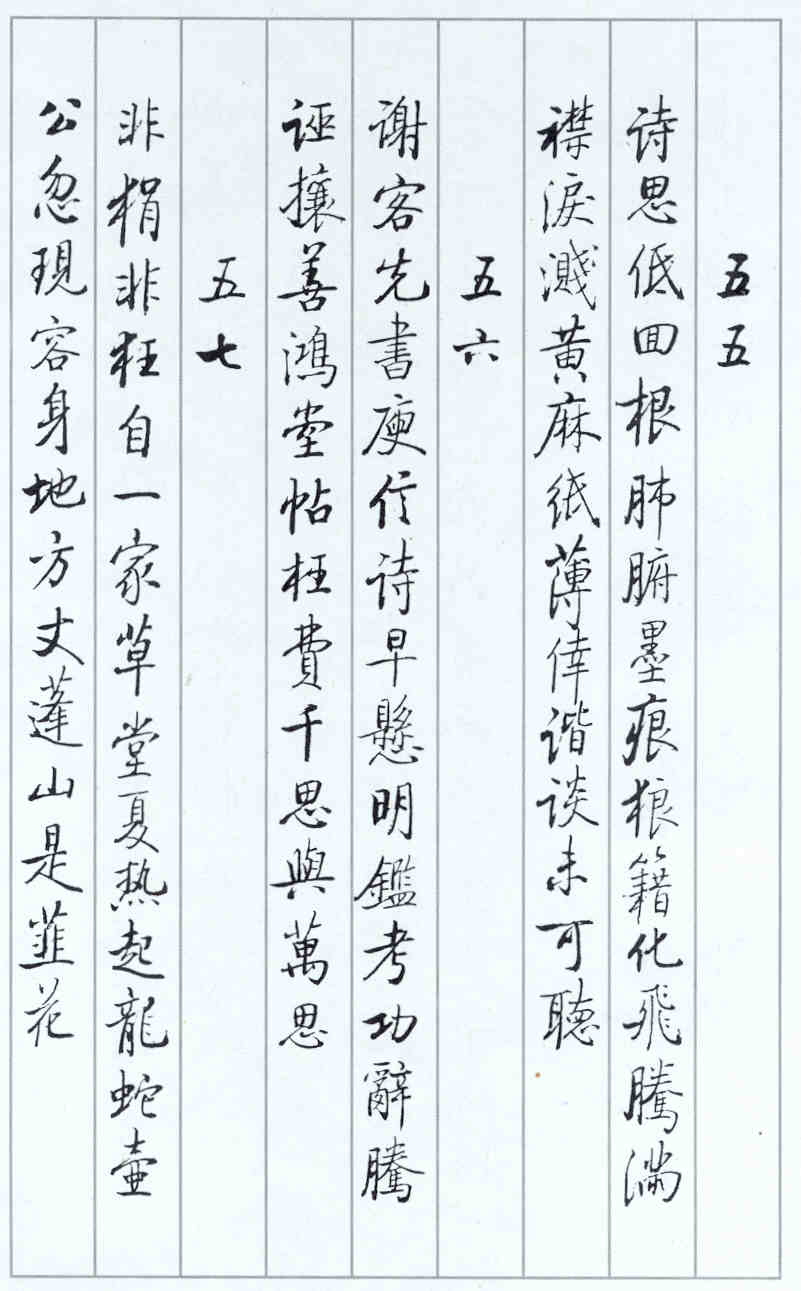 五五
诗思低回根肺腑墨痕狼籍化飛騰满
襟淚濺黄麻纸薄倖谐谈未可聽
五六
谢客先書庾信诗早懸明鑑考功辭騰
诬攘善鴻堂帖枉費千思與萬思
五七
非狷非狂自一家草堂夏热起龍蛇壶
公忽現容身地方丈蓬山是韮花